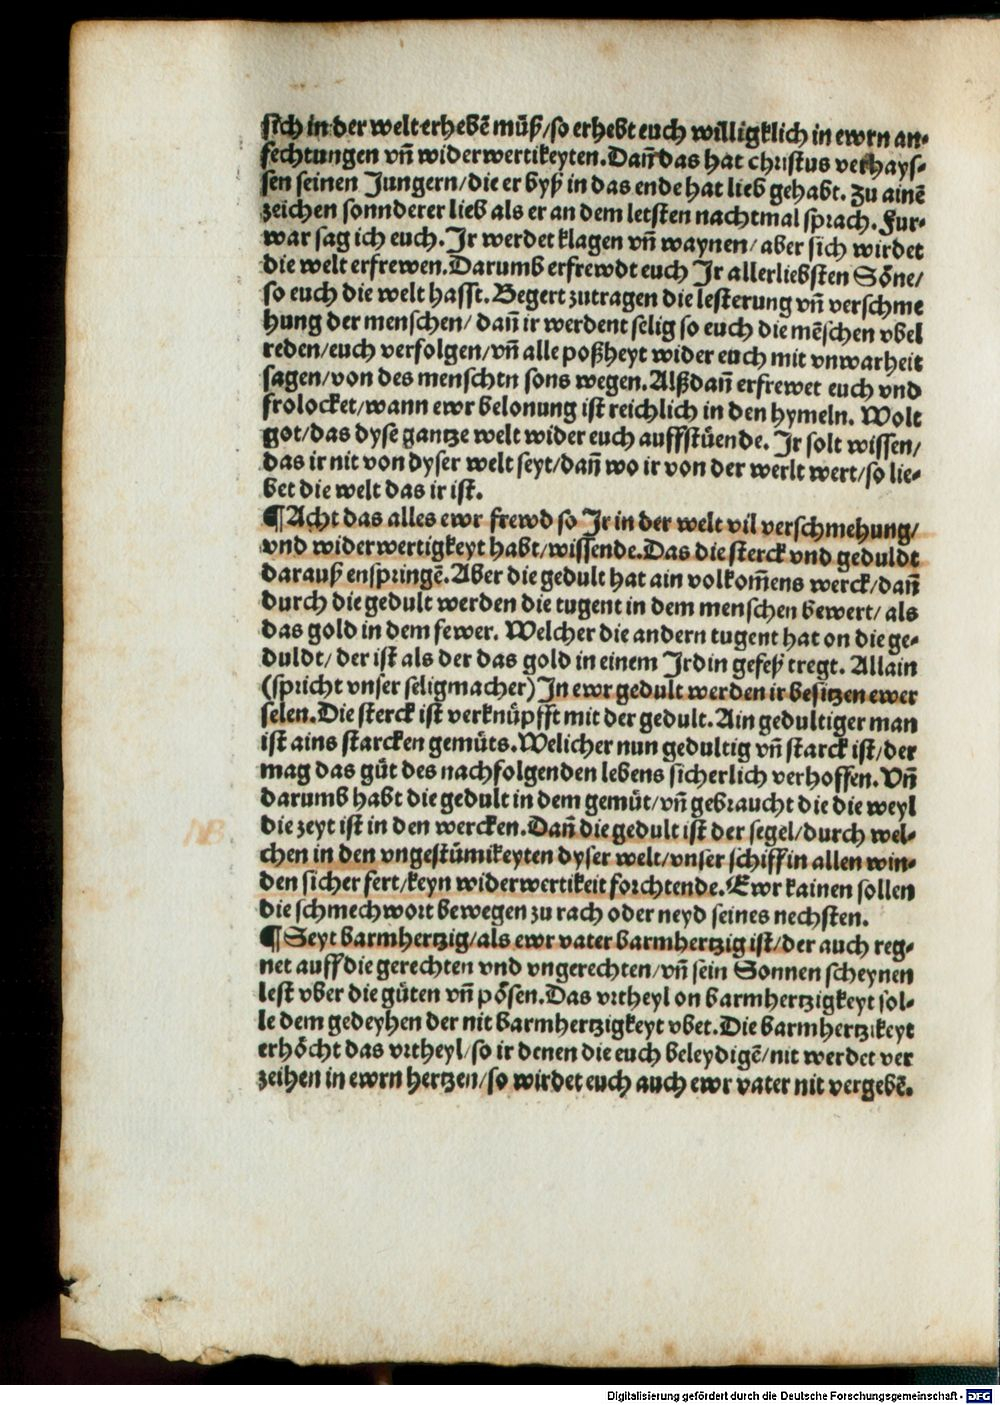 sich in der welt erhebē müß/so erhebt euch williglklich in ewrn an-
fechtungen vn̄ widerwertikeyten. Dan̄ das hat christus verhays-
sen seinen Jungern/die er byß in das ende hat lieb gehabt. Zu ainē
zeichen sonnderer lieb als er an dem letsten nachtmal sprach. Fur-
war sag ich euch. Ir werdet klagen vn̄ waynen/ aber sich wirdet
die welt erfrewen. Darumb erfrewdt euch Ir allerliebsten Söne/
so euch die welt hasst. Begert zutragen die lesterung vn̄ verschme
hung der menschen/ dan̄ ir werdent selig so euch die mēschen vbel
reden/euch verfolgen/vn̄ alle poßheyt wider euch mit vnwarheit
sagen/von des menschtn sons wegen. Alßdan̄ erfrewet euch vnd
frolocket/wann ewr belonung ist reichlich in den hymeln. Wolt
got/das dyse gantze welt wider euch auffstüende. Ir solt wissen/
das ir nit von dyser welt seyt/dan̄ wo ir von der werlt wert/so lie-
bet die welt das ir ist.
¶ Acht das alles ewr frewd so Ir in der welt vil verschmehung/
vnd widerwertigkeyt habt/wissende. Das die sterck vnd geduldt
darauß enspringē. Aber die gedult hat ain volkom̄ens werck/dan̄
durch die gedult werden die tugent in dem menschen bewert/ als
das gold in dem fewer. Welcher die andern tugent hat on die ge-
duldt/ der ist als der das gold in einem Irdin gefeß tregt. Allain
(spricht vnser seligmacher) In ewr gedult werden ir besitzen ewer
selen. Die sterck ist verknüpfft mit der gedult. Ain gedultiger man
ist ains starcken gemüts. Welicher nun gedultig vn̄ starck ist/der
mag das güt des nachfolgenden lebens sicherlich verhoffen. Vn̄
darumb habt die gedult in dem gemüt/vn̄ gebraucht die die weyl
NB die zeyt ist in den wercken. Dan̄ die gedult ist der segel/durch wel-
chen in den vngestümikeyten dyser welt/vnser schiff in allen win-
den sicher fert/keyn widerwertikeit forchtende. Ewr kainen sollen
die schmechwort bewegen zu rach oder neyd seines nechsten.
¶ Seyt barmhertzig/als ewr vater barmhertzig ist/der auch reg-
net auff die gerechten vnd vngerechten/vn̄ sein Sonnen scheynen
lest vber die güten vn̄ pösen. Das vrtheyl on barmhertzigkeyt sol-
le dem gedeyhen der nit barmhertzigkeyt vbet. Die barmhertzikeyt
erhöcht das vrtheyl/so ir denen die euch beleydigē/nit werdet ver
zeihen in ewrn hertzen/so wirdet euch auch ewr vater nit vergebē.
Digitalisierung gefördert durch die Deutsche Forschungsgemeinschaft - DFG